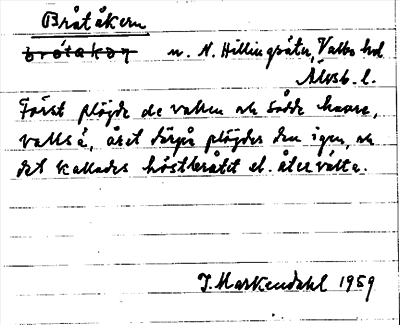 Bråtåkern
brótakəņ n. N. Hillingsäter, Valbo hd
Älvsb. l.
Först plöjde de vallen och sådde havre,
vallså, året därpå plöjdes den igen, och
det kallades höstbråtet el. återvälta.
J. Markendahl 1959